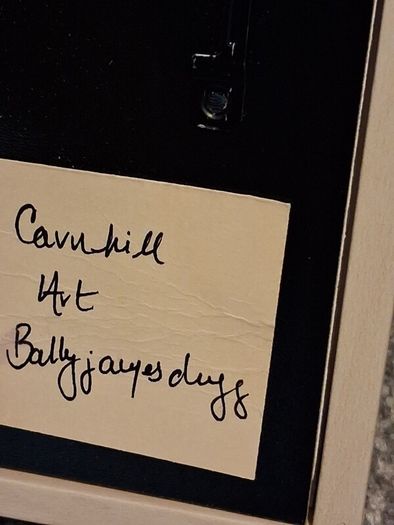 Carnhill
Art
Ballyjamesduff